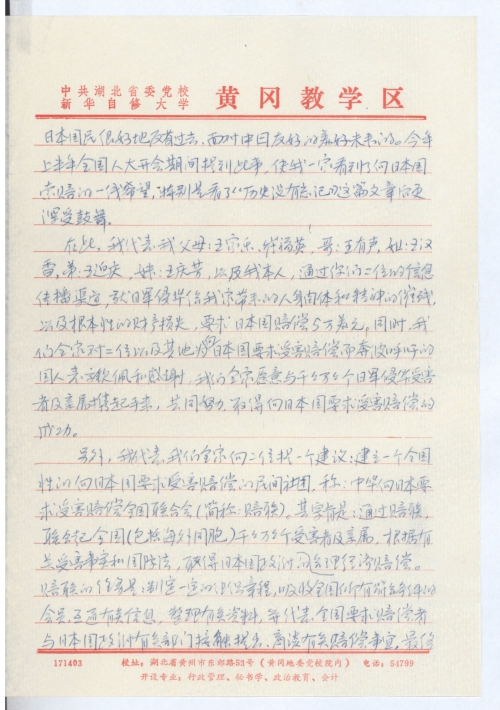 中共湖北省委党校
新华自修大学 黄冈教学区
日本国民很好地反省过去、面对中日友好的美好未来的。今年
上半年全国人大开会期间提到此事，使我一家看到了向日本国
索赔的一线希望，特别是看了《历史没有忘记》这篇文章后更
深受鼓舞。
在此，我代表我父母：王、哥：王有声，姐：王汉
，弟：王迎，妹：王庆芳，以及我本人，通过你们二位的信息
传播渠道，就日军侵华给我家带来的人身肉体和精神的摧残，
以及根本性的财产损失，要求日本国赔偿5万美元，同时，我
们全家对二位以及其他为向日本国要求受害赔偿而奔波呼吁的
国人表示钦佩和感谢，我们全家愿意与千千万万个日军侵华受害
者及亲属携起手来，共同努力，取得向日本国要求受害赔偿的
成功。
另外，我代表我们全家向二位提一个建议：建立一个全国
性的向日本国要求受害赔偿的民间社团，称：中华向日本要
求受害赔偿全国联合会（简称：赔联）。其宗旨是：通过赔联，
联合起全国（包括海外同胞）千千万万个受害者及亲属，根据有
关受害事实和国际法，取得日本国政府的合理经济赔偿。
赔联的任务是：制定一定的组织章程，吸收全国所有符合条件的
会员，互通有关信息，整理有关资料，并代表全国要求赔偿者
与日本国政府有关部门接触提出、商谈有关赔偿事宜，最终
171403 校址：湖北省黄州市东郊路53号（黄冈地委党校院内） 电话：54799
开设专业：行政管理、秘书学、政治教育、会计